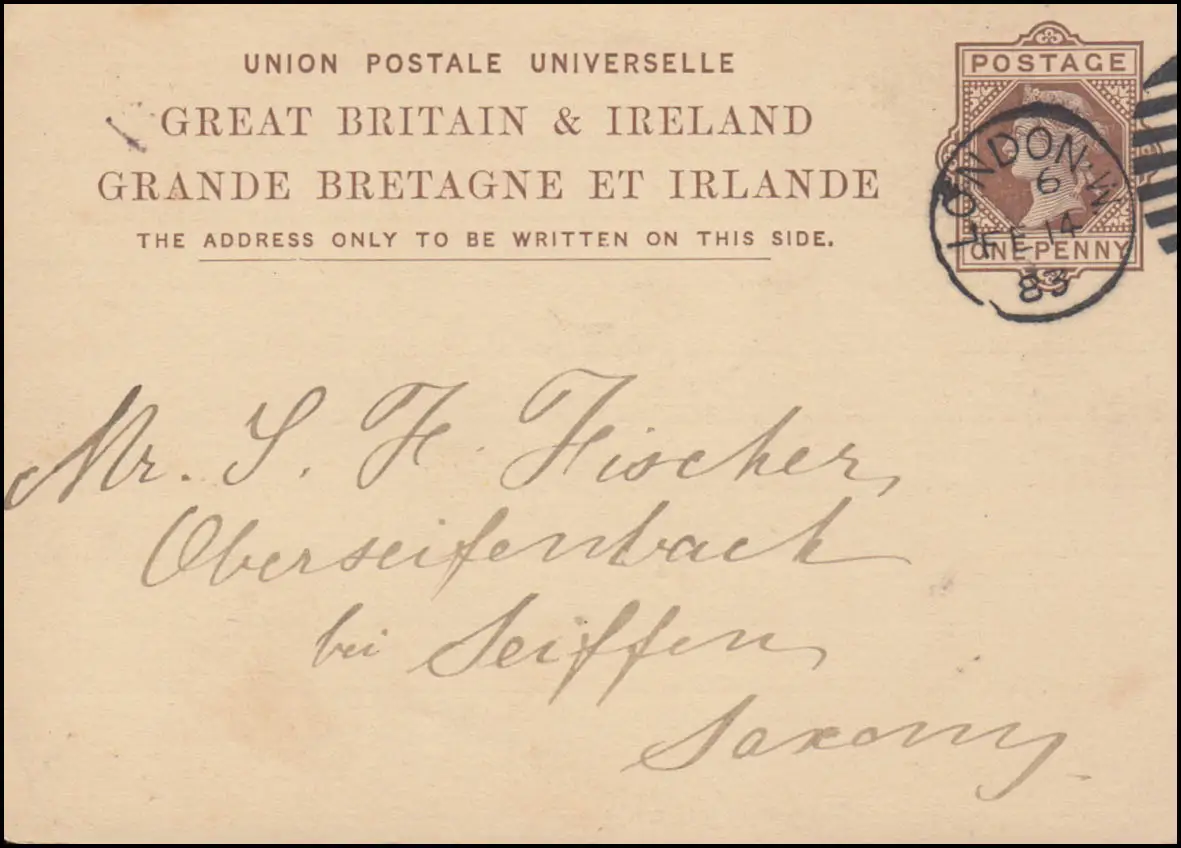 UNION POSTALE UNIVERSELLE
GREAT BRITAIN & IRELAND
GRANDE BRETAGNE ET IRLANDE
THE ADDRESS ONLY TO BE WRITTEN ON THIS SIDE.
POSTAGE
ONE PENNY
LONDON·W
6
FE 14
83
Mr. S. H. Fischer,
Oberseifenbach
bei Seiffen,
Saxony.